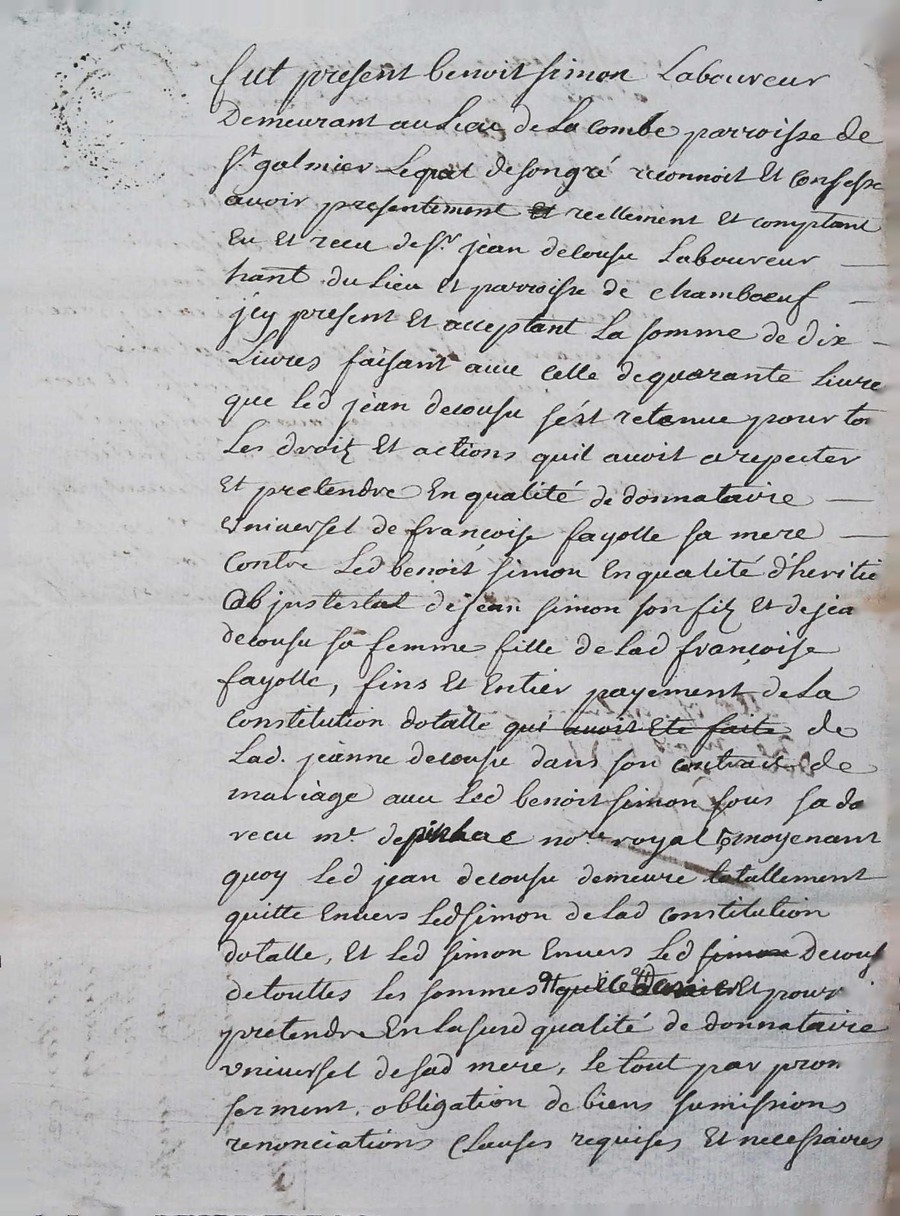 fut present benoit simon Laboureur
Demeurant au Lieu de La combe parroisse de
St galmier Lequel de son gré reconnoit Et confesse
avoir presentement Et reellement Et comptant
Eu Et recu de Sr. jean decousu Laboureur
hant du Lieu Et parroisse de chambœuf
jcy present Et acceptant La somme de dix
Livres faisant avec celle de quarante Livre
que led jean decousu s'est retenue pour to
Les droitz Et actions quil avoit a repeter
Et pretendre En qualité de donnataire
universel de françoise fayolle sa mere
Contre Led benoit simon En qualité d'heritie
Ab jntestat de jean simon son filz Et de jea
decousu sa femme fille de lad françoise
fayolle, fins Et Entier payement de La
Constitution dotalle qui avoit Ete faite de
Lad. jeanne decousu dans son contract de
mariage avec Led benoit simon sous sa da
recu me. de nore. royal moyenant
quoy Led jean decousu demeure totallement
quitte Envers Led simon de lad constitution
dotalle, Et Led simon Envers Led simon Decous
de touttes Les sommes Et pour
pretendre En la susd qualité de donnataire
universel de sad mere, Le tout par prom
serment, obligation de biens sumissions
renonciations Clauses requises Et necessaires